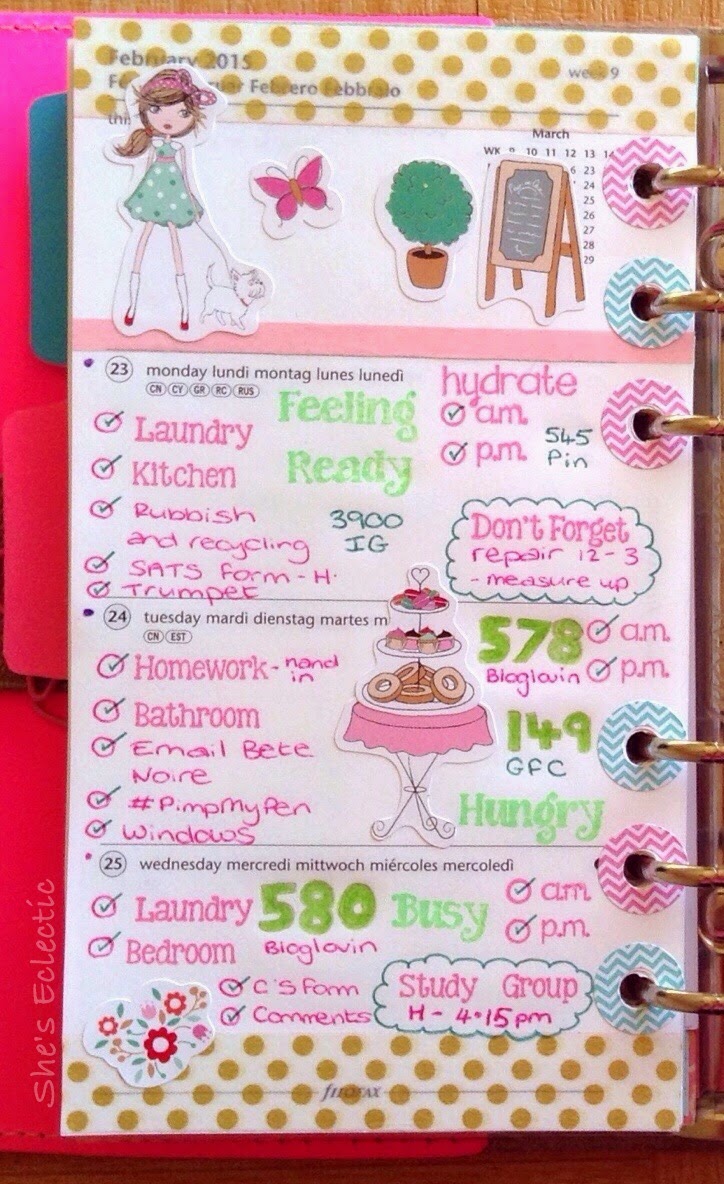 February 2015
week 9
Febrero Febbraio
March
WK 10 11 12 13 14
6 23
24
25
26
27
28
29
23 monday lundi montag lunes lunedì
CN CY GR RC RUS
hydrate
a.m.
p.m.
Feeling
Ready
545
Pin
Laundry
Kitchen
Rubbish
and recycling
SATS form - H.
Trumpet
3900
IG
Don't Forget
repair 12-3
- measure up
24 tuesday mardi dienstag martes m
CN EST
Homework - hand
in
Bathroom
Email Bete
Noire
#PimpMyPen
Windows
578
Bloglovin
a.m.
p.m.
149
GFC
Hungry
25 wednesday mercredi mittwoch miércoles mercoledì
Laundry
Bedroom
580
Bloglovin
Busy
a.m.
p.m.
C'S Form
Comments
Study Group
H - 4.15pm
filofax
She's Eclectic